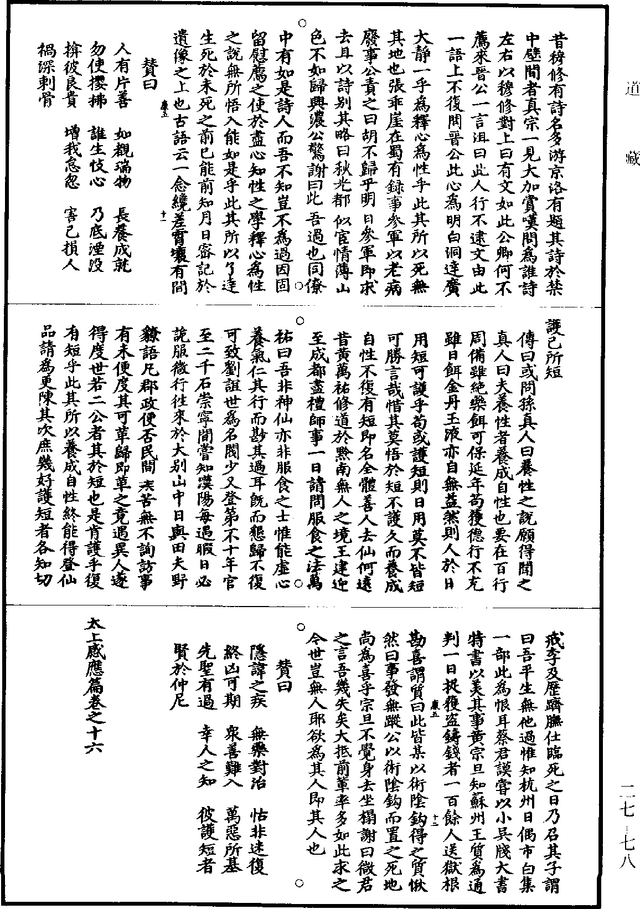 道藏
昔穆修有詩名多游京洛有題其詩於禁
中壁間者真宗一見大加賞嘆問為誰詩
左右以穆修對上曰有文如此公卿何不
薦來晉公一言沮曰此人行不逮文由此
一語上不復問晉公此心為明白洞達廣
大靜一乎為釋心為性乎此其所以死無
其地也張乖崖在蜀有錄事參軍以老病
廢事公責之曰胡不歸乎明日參軍即求
去且以詩別其略曰秋光都似宦情薄山
色不如歸興濃公驚謝曰此吾過也同僚
中有如是詩人而吾不知豈不為過因固
留慰薦之使於盡心知性之學釋心為性
之說無所悟入能如是乎此其所以了達
生死於未死之前已能前知月日密記於
遺像之上也古語云一念纔差霄壤有間
贊曰
人有片善 如觀瑞物 長養成就
勿使攖拂 誰生忮心 乃底湮沒
擠彼良貴 增我怠忽 害已損人
禍深刺骨
護己所短
傳曰或問孫真人曰養性之說願得聞之
真人曰夫養性者養成自性也要在百行
周備雖絕藥餌可保延年苟獲德行不充
雖日餌金丹玉液亦自無益然則人於日
用短可護乎苟或護短則日用莫不皆短
可勝言哉惜其莫悟於短不護久而養成
自性不復有短即名全體善人去仙何遠
昔黃萬祐修道於黔南無人之境王建迎
至成都盡禮師事一日請問服食之法萬
祐曰吾非神仙亦非服食之士惟能虛心
養氣仁其行而尠其過耳既而懇歸不復
可致劉誼世為名閥少又登第不十年官
至二千石崇寧間嘗知漢陽每過暇日必
詭服微行往來於大別山中日與田夫野
獠語凡郡政便否民間疾苦無不詢訪事
有未便度其可革歸即革之竟遇異人遂
得度世若二公者其於短也是肯護乎復
有短乎此其所以養成自性終能得登仙
品請為更陳其次庶幾好護短者各知切
戒李及歷躋膴仕臨死之日乃召其子謂
曰吾平生無他過惟知杭州日偶市白集
一部此為恨耳蔡君謨嘗以小吳牋大書
特書以美其事黃宗旦知蘇州王質為通
判一日捉獲盜鑄錢者一百餘人送獄根
勘喜謂質曰此皆某以術陰鈎得之質愀
然曰事發無蹤公以術陰鈎而置之死地
尚為喜乎宗旦不覺身去坐榻謝曰微君
之言吾幾失矣大抵前輩率多如此求之
今世豈無人耶欲為其人即其人也
贊曰
隱諱之疾 無藥對治 怙非迷復
終凶可期 眾善難入 萬惡所基
先聖有過 幸人之知 彼護短者
賢於仲尼
太上感應篇卷之十六
二七-七八